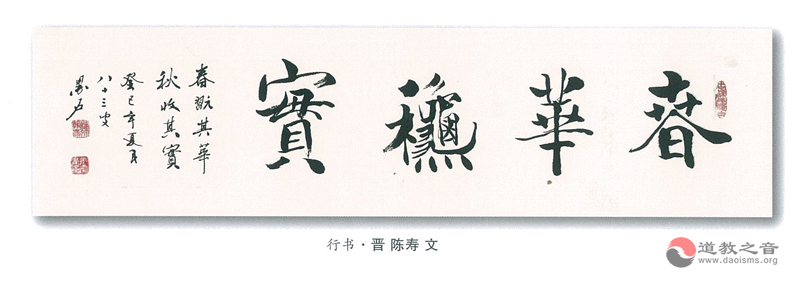 春華龝實
春翫其華
秋收其實
癸巳年夏月
八十三叟
行书·晋 陈寿 文
道教之音
www.daoisms.org